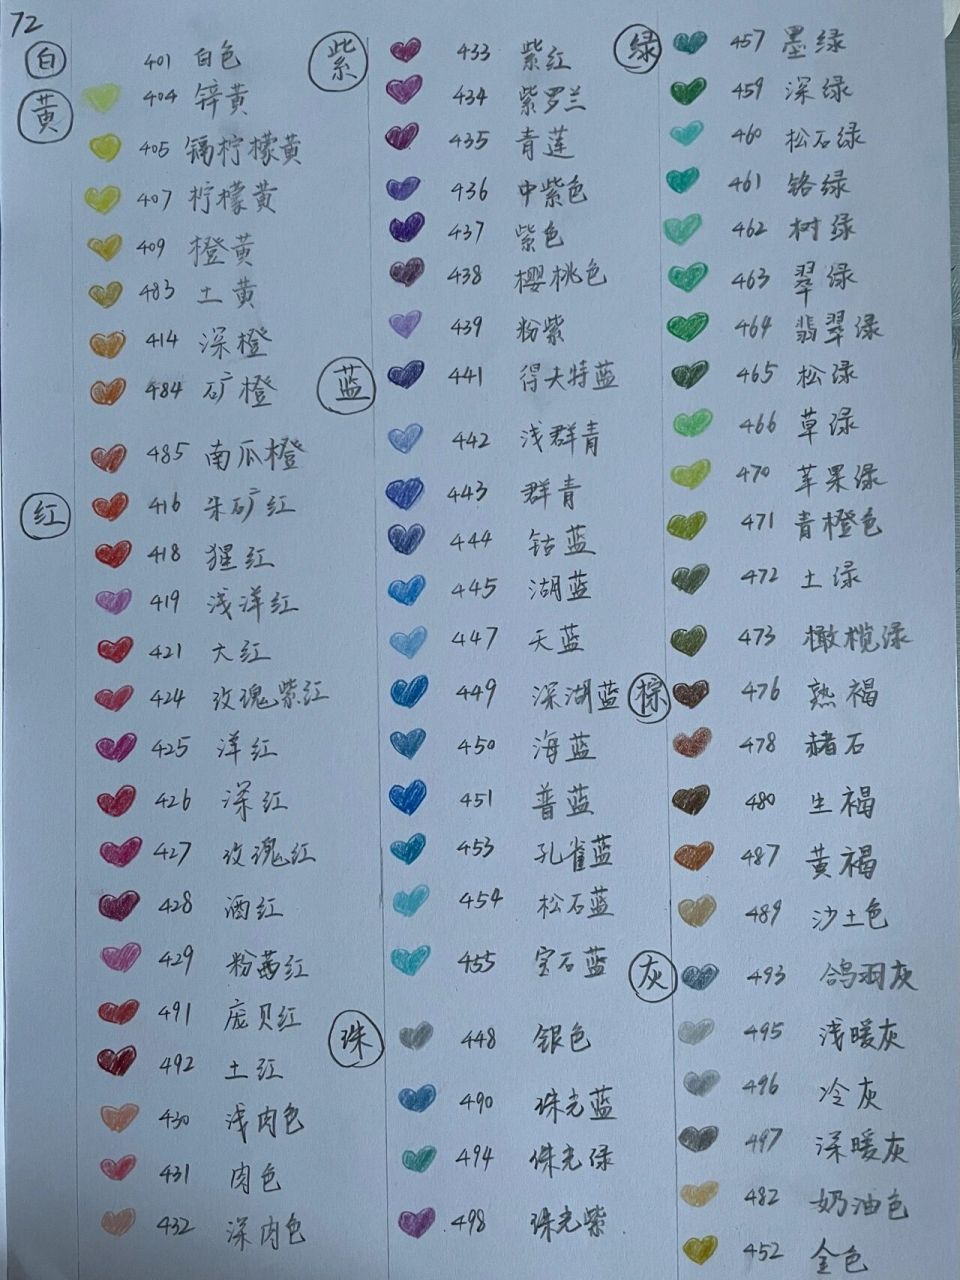 72
白
401 白色
黄
404 锌黄
405 镉柠檬黄
407 柠檬黄
409 橙黄
483 土黄
414 深橙
484 矿橙
485 南瓜橙
红
416 朱矿红
418 猩红
419 浅洋红
421 大红
424 玫瑰紫红
425 洋红
426 深红
427 玫瑰红
428 酒红
429 粉茜红
491 庞贝红
492 土红
430 浅肉色
431 肉色
432 深肉色
紫
433 紫红
434 紫罗兰
435 青莲
436 中紫色
437 紫色
438 樱桃色
439 粉紫
蓝
441 得夫特蓝
442 浅群青
443 群青
444 钴蓝
445 湖蓝
447 天蓝
449 深湖蓝
450 海蓝
451 普蓝
453 孔雀蓝
454 松石蓝
455 宝石蓝
珠
448 银色
490 珠光蓝
494 珠光绿
498 珠光紫
绿
457 墨绿
459 深绿
460 松石绿
461 铬绿
462 树绿
463 翠绿
464 翡翠绿
465 松绿
466 草绿
470 苹果绿
471 青橙色
472 土绿
473 橄榄绿
棕
476 熟褐
478 赭石
480 生褐
487 黄褐
489 沙土色
灰
493 鸽羽灰
495 浅暖灰
496 冷灰
497 深暖灰
482 奶油色
452 金色